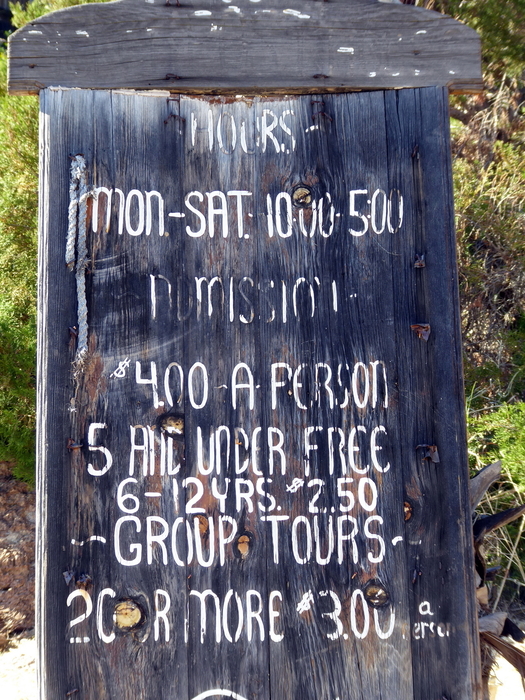 - HOURS -
MON-SAT. 10:00-5:00
- ADMISSION -
$4.00 A PERSON
5 AND UNDER FREE
6-12 YRS. $2.50
~ GROUP TOURS ~
20 OR MORE $3.00 a person